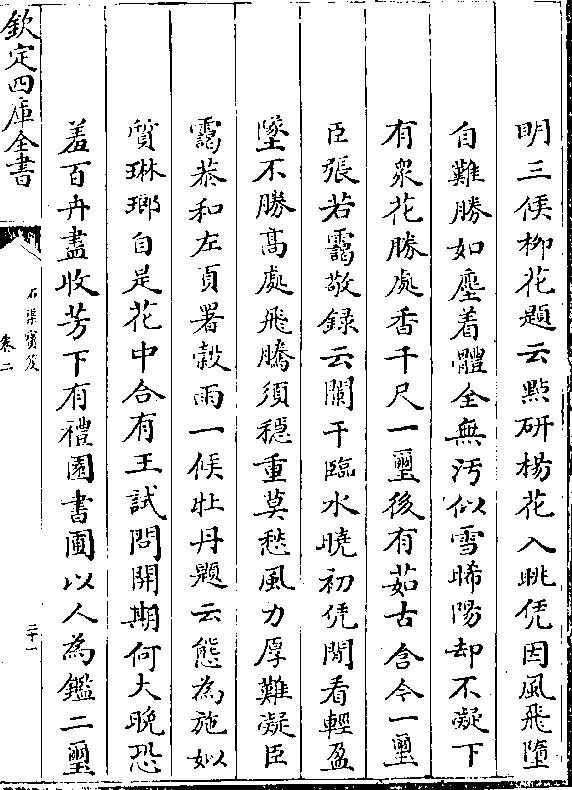 明三候柳花題云點硏楊花入眺凭因風飛墮
自難勝如塵着體全無汚似雪晞陽却不凝下
有衆花勝處香千尺一璽後有茹古含今一璽
臣張若靄敬録云闌干臨水曉初凭閒看輕盈
墜不勝髙處飛騰須穏重莫愁風力厚難凝臣
靄恭和左頁署榖雨一候牡丹題云態為施姒
質琳瑯自是花中合有王試問開期何大晩恐
羞百卉盡收芳下有禮園書圃以人為鑑二璽
欽定四庫全書
石渠寳笈
卷二
三十一